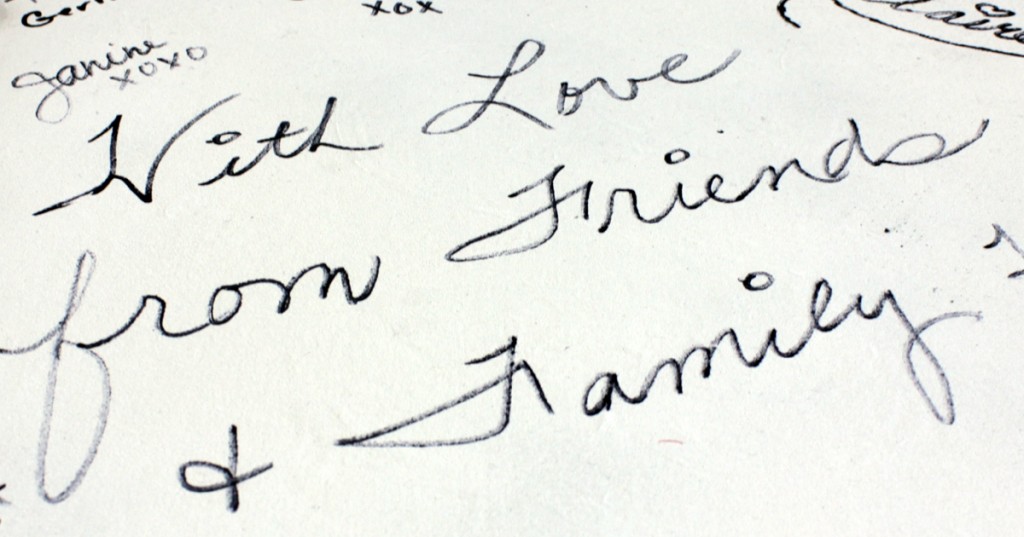 xox
Janine
xoxo
With Love
from Friends
& Family